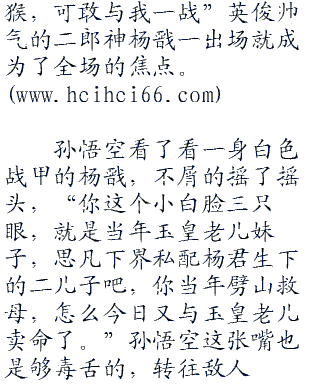 猴，可敢与我一战”英俊帅
气的二郎神杨戬一出场就成
为了全场的焦点。
(www.hcihci66.com)
孙悟空看了看一身白色
战甲的杨戬，不屑的摇了摇
头，“你这个小白脸三只
眼，就是当年玉皇老儿妹
子，思凡下界私配杨君生下
的二儿子吧，你当年劈山救
母，怎么今日又与玉皇老儿
卖命了。”孙悟空这张嘴也
是够毒舌的，转往敌人